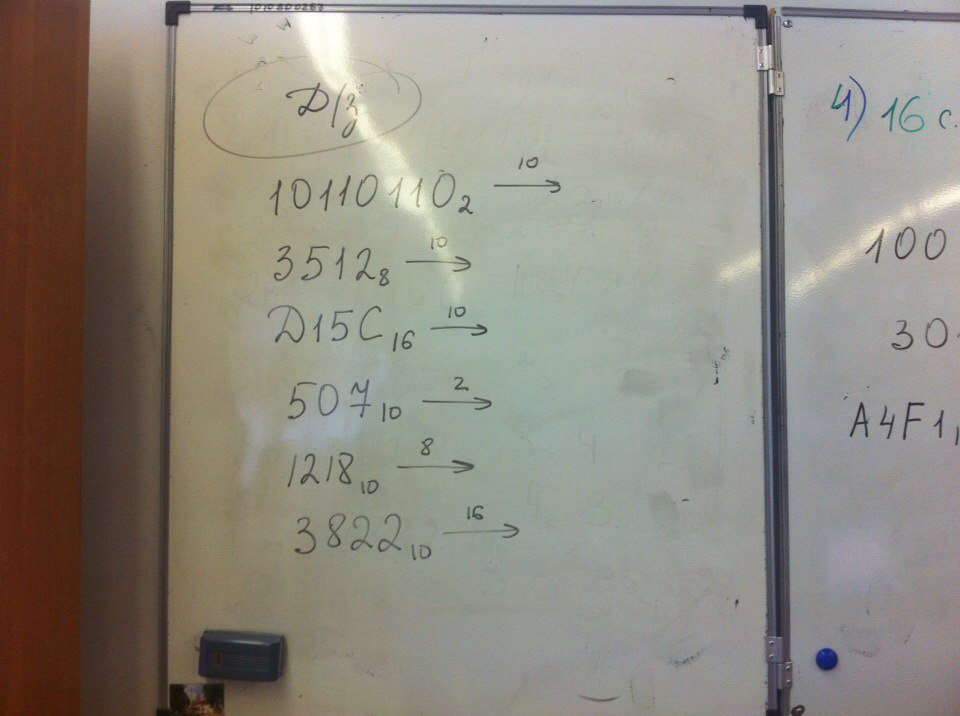 Д/з
10110110₂ 10→
3512₈ 10→
D15C₁₆ 10→
507₁₀ 2→
1218₁₀ 8→
3822₁₀ 16→
4) 16 с.
100
30
A4F1₁